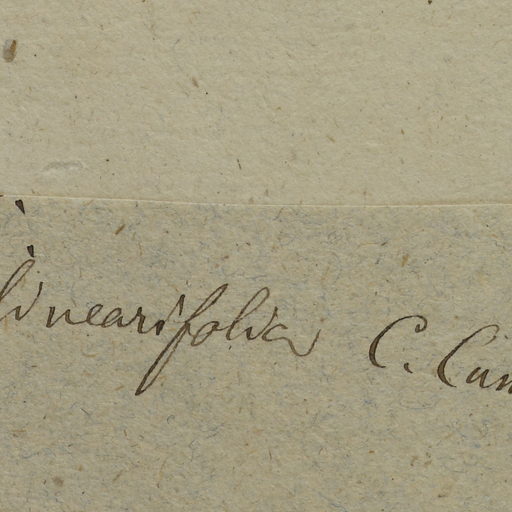 linearifolia C. Cun